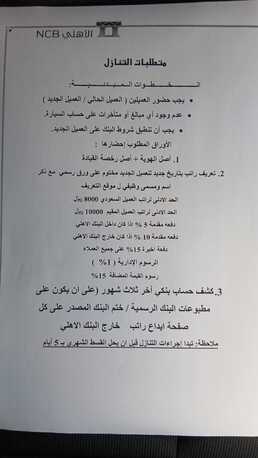 الأهلي NCB
متطلبات التنازل
الخطوات المبدئية:
• يجب حضور العميلين ( العميل الحالي / العميل الجديد )
• عدم وجود أي مبالغ أو متأخرات على حساب السيارة.
• يجب أن تنطبق شروط البنك على العميل الجديد.
الأوراق المطلوب إحضارها :
1. أصل الهوية + أصل رخصة القيادة
2. تعريف راتب بتاريخ جديد للعميل الجديد مختوم على ورق رسمي مع ذكر
اسم ومسمى وظيفي ل موقع التعريف
الحد الادنى لراتب العميل السعودي 8000 ريال
الحد الادنى لراتب العميل المقيم 10000 ريال
دفعه مقدمة 5 % اذا كان داخل البنك الاهلي
دفعه مقدمة 10 % اذا كان خارج البنك الاهلي
دفعة أخيرة 15% على جميع العملاء
الرسوم الإدارية ( 1% )
رسوم القيمة المضافة 15%
3. كشف حساب بنكي أخر ثلاث شهور (على ان يكون على
مطبوعات البنك الرسمية / ختم البنك المصدر على كل
صفحة ايداع راتب خارج البنك الاهلي
ملاحظة: تبدا إجراءات التنازل قبل ان يحل القسط الشهري بـ 5 أيام